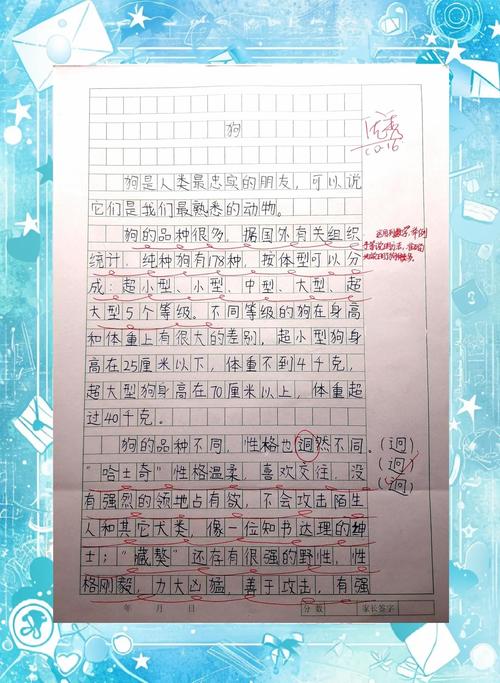 狗
优秀
10.16
狗是人类最忠实的朋友，可以说
它们是我们最熟悉的动物。
狗的品种很多，据国外有关组织
统计，纯种狗有178种，按体型可以分
成：超小型、小型、中型、大型、超
大型5个等级。不同等级的狗在身高
和体重上有很大的差别，超小型狗身
高在25厘米以下，体重不到4千克，
超大型狗身高在70厘米以上，体重超
过40千克。
狗的品种不同，性格也迥然不同。
(迥)
(迥)
(迥)
“哈士奇”性格温柔，喜欢交往，没
有强烈的领地占有欲，不会攻击陌生
人和其它犬类，像一位知书达理的绅
士；“藏獒”还存有很强的野性，性
格刚毅，力大凶猛，善于攻击，有强
年 月 日
分数
家长签字